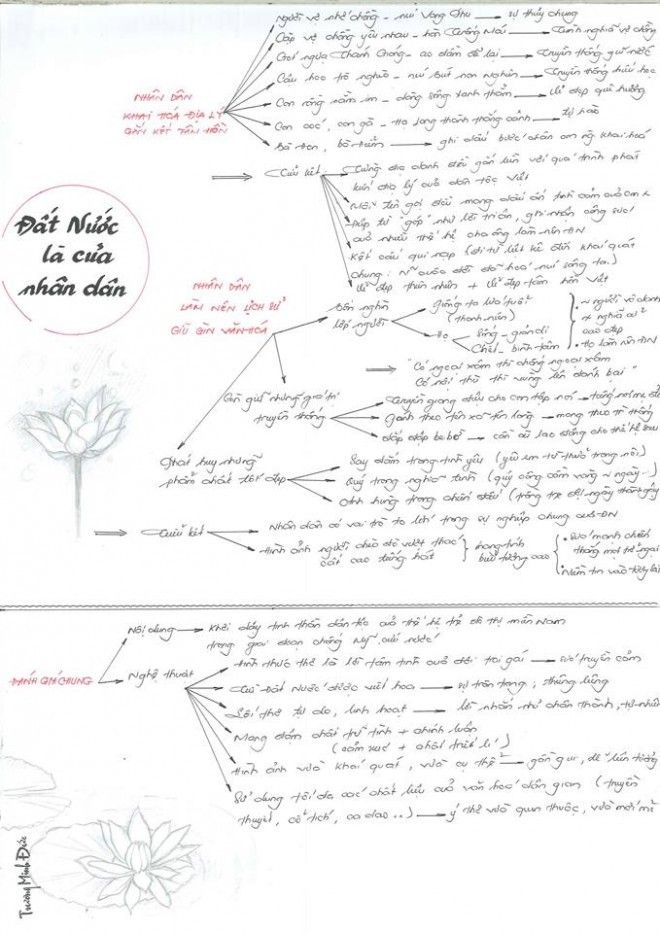 Người vợ nhớ chồng - núi Vọng Phu → sự thủy chung
Cặp vợ chồng yêu nhau - hòn Trống Mái → tình nghĩa vợ chồng
Gót ngựa Thánh Gióng - ao đầm để lại → truyền thống giữ nước
Cậu học trò nghèo - núi Bút non Nghiên → truyền thống hiếu học
Con rồng nằm im - dòng sông xanh thẳm → vẻ đẹp quê hương
Con cóc, con gà - Hạ Long thành thắng cảnh → tự hào
Bà Đen, bà Điểm → ghi dấu bước chân ông khai hoá
NHÂN DÂN
KHAI HOÁ ĐỊA LÝ
GẮN KẾT TÂM HỒN
⇒ Tiểu kết
Từng địa danh đều gắn liền với quá trình phát
kiến địa lý của dân tộc Việt
Mỗi tên gọi đều mang dấu ấn tình cảm của
Điệp từ "góp" như lời tri ân, ghi nhận công sức
của nhiều thế hệ cha ông làm nên ĐN
Kết cấu qui nạp (đi từ liệt kê đến khái quát
chung: cuộc đời đã hoá núi sông ta)
Vẻ đẹp thiên nhiên + vẻ đẹp tâm hồn Việt
Đất Nước
là của
nhân dân
NHÂN DÂN
LÀM NÊN LỊCH SỬ
GIỮ GÌN VĂN HOÁ
Bốn nghìn
lớp người
Giống ta lứa tuổi
(thanh niên)
Họ
Sống - giản dị
Chết - bình tâm
người vô danh
nghĩa cử
cao đẹp
• Họ làm nên ĐN
⇒ "Có ngoại xâm thì chống ngoại xâm
Có nội thù thì vùng lên đánh bại"
Gìn giữ những giá trị
truyền thống
Truyền giọng điệu cho con tập nói → tiếng nói mẹ đẻ
Gánh theo tên xã tên làng → mong
đắp đập be bờ → cần cù lao động cho thế hệ sau
Phát huy những
phẩm chất tốt đẹp
Say đắm trong tình yêu (yêu em từ thuở trong nôi)
Quý trọng nghĩa tình (quý công cầm vàng ngày)
Anh hùng trong chiến đấu (trồng tre đợi ngày thành gậy)
⇒ Tiểu kết
Nhân dân có vai trò to lớn trong sự nghiệp chung của ĐN
Hình ảnh người chèo đò vượt thác
cất cao tiếng hát
mang tính
biểu tượng cao
• Sức mạnh chiến
thắng mọi trở ngại
• Niềm tin vào tương lai
ĐÁNH GIÁ CHUNG
Nội dung → Khơi dậy tinh thần dân tộc của thế hệ trẻ đô thị miền Nam
trong giai đoạn chống Mỹ, cứu nước
Nghệ thuật
Hình thức thơ là lời tâm tình của đôi trai gái → sức truyền cảm
Chữ Đất Nước được viết hoa → sự trân trọng, thiêng liêng
Lối thơ tự do, linh hoạt → lời nhắn nhủ chân thành, tự nhiên
Mang đậm chất trữ tình + chính luận
(cảm xúc + chất triết lí)
Hình ảnh vừa khái quát, vừa cụ thể → gần gũi, dễ liên tưởng
Sử dụng tối đa các chất liệu của văn học dân gian (truyền
thuyết, cổ tích, ca dao...) → ý thơ vừa quen thuộc, vừa mới mẻ
Trương Minh Đức